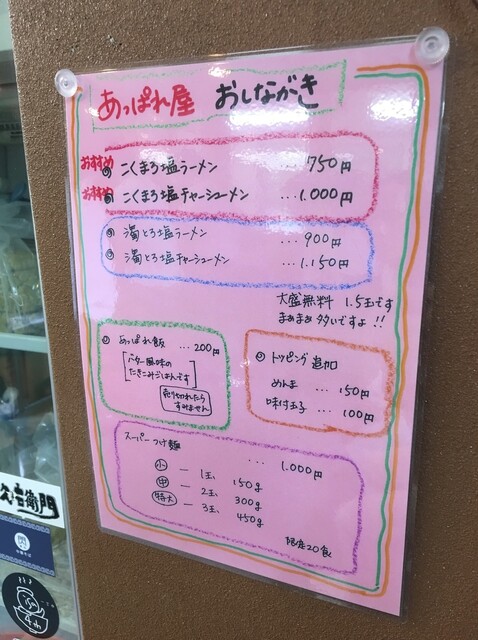 あっぱれ屋 おしながき
おすすめ こくまろ塩ラーメン … 750円
おすすめ こくまろ塩チャーシューメン … 1.000円
濁とろ塩ラーメン … 900円
濁とろ塩チャーシューメン … 1.150円
大盛無料 1.5玉です
まあまあ多いですよ!!
あっぱれ飯 … 200円
[バター風味の
たきこみごはんです]
売り切れたら
すみません
トッピング追加
めんま … 150円
味付玉子 … 100円
スーパーつけ麺 … 1.000円
小 — 1玉 150g
中 — 2玉 300g
特大 — 3玉 450g
限定20食
右衛門